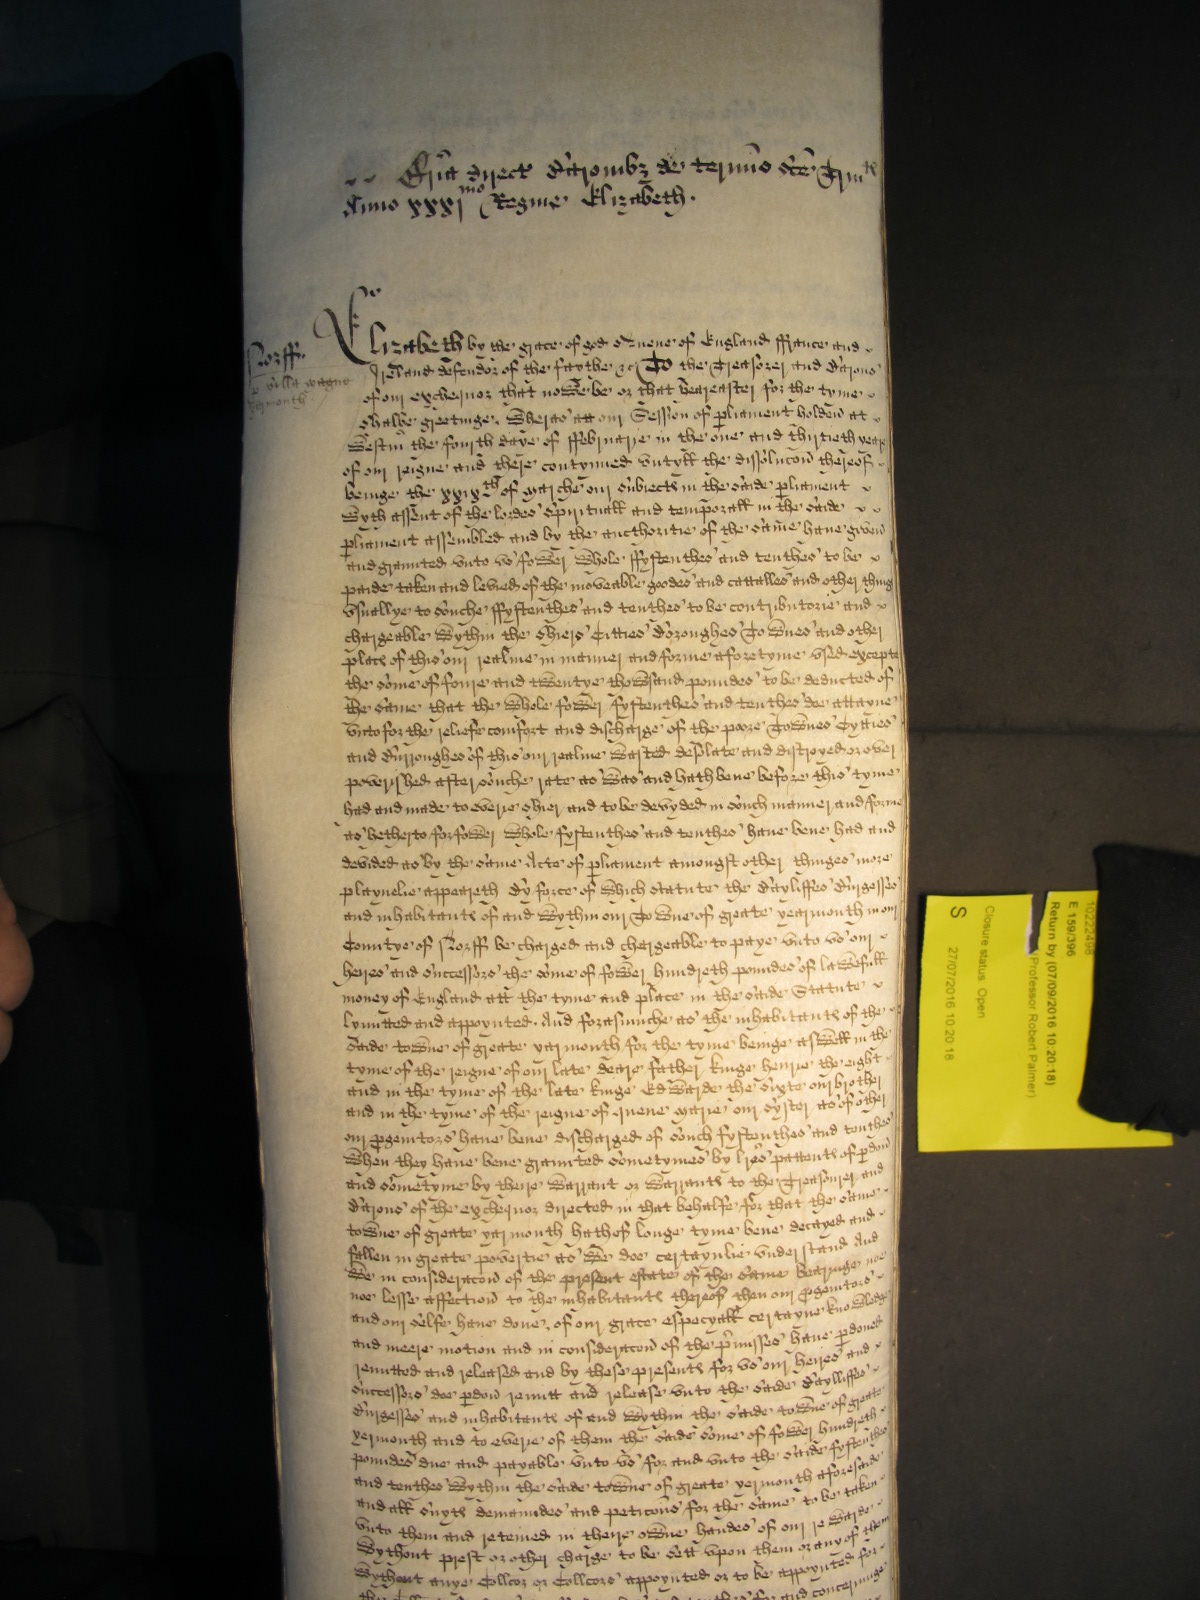 Br̃ia direct Baronibȝ de termĩo sc̃e Trinit̃
Anno xxxjmo Regine Elizabeth.
Norff.
p villa magne
yermouth
Elizabeth by the grace of god Quene of England ffrance and
Ireland defendor of the faythe &c To the Treasorer and Barons
of our exchequor that nowe be or that heareafter for the tyme
shalbe greetinge. Wheras att our Session of pliament holden at
Westm̃ the fourth daye of ffebruarie in the one and thirtieth yeare
of our reigne and there contynued untyll the dissolucon thereof
beinge the xxixth of Marche our subiects in the saide pliament
wyth assent of the lordes spirituall and temporall in the saide
pliament assembled and by the aucthoritie of the same have given
and graunted unto us fower whole ffyftenthes and tenthes to be
paide taken and levied of the moveable goodes and cattalles and other things
usuallye to souche ffyftenthes and tenthes to be contributorie and
chargeable wythin the shiers Citties Boroughes Townes and other
places of this our realme in manner and forme aforetyme used excepte
the some of foure and twentye thowsand poundes to be deducted of
the same that the whole fower fyftenthes and tenthes doe attayne
unto for the reliefe comfort and discharge of the poore Townes Cyties
and Burroughes of this our realme wasted desolate and distroyed or over
poverished after souche rate as was and hath bene before this tyme
had and made to everie shier and to be devyded in souch manner and forme
as hetherto for fower whole fyftenthes and tenthes have bene had and
devided as by the same Acte of pliament amongst other thinges more
playnelie appeareth By force of which statute the Bayliffes Burgesses
and inhabitants of and wythin our Towne of greate yearmouth in our
Countye of Norff be charged and chargeable to paye unto us our
heires and successors the some of fower hundreth poundes of lawfull
money of England att the tyme and place in the saide Statute
lymitted and appoynted. And forasmuche as the inhabitants of the
saide towne of greate yarmouth for the tyme beinge aswell in the
tyme of the reigne of our late deare father kinge henrie the eight
and in the tyme of the late kinge Edwarde the sixte our brother
and in the tyme of the reigne of Quene Marie our syster as of other
our pgenitors have bene discharged of souch fyftenthes and tenthes
when they have bene graunted sometymes by lr̃es pattents of pdon
and sometyme by there warrant or warrants to the Treasourer and
Barons of the exchequor directed in that behalfe for that the same
towne of greate yarmouth hath of longe tyme bene decayed and
fallen in greate povertie as we doe certaynlie understand And
we in consideracon of the present estate of the same bearinge noe
noe lesse affection to the inhabitants thereof then our pgenitors
and our selfe have done, of our grace especyall certayne knowledge
and meere motion and in consideracon of the p̃misses have pdoned
remitted and released and by these presents for us our heires and
successors doe pdon remitt and release unto the saide Baylliffes
Burgesses and inhabitants of and wythin the saide towne of greate
yermouth and to everie of them the saide some of fower hundreth
poundes due and payable unto us for and unto the saide fyftenthes
and tenthes wythin the saide towne of greate yermouth aforesaide
and all suyts demaundes and peticons for the same to be taken
unto them and reteined in there owne handes of our rewarde
wythout prest or other charge to be sett upon them or any of them
wythout anye Collcor or Collcors appoynted or to be appoynted for
10222498
E 159/396
Return by (07/09/2016 10:20:18)
Professor Robert Palmer)
Closure status: Open
S
27/07/2016 10:20:18